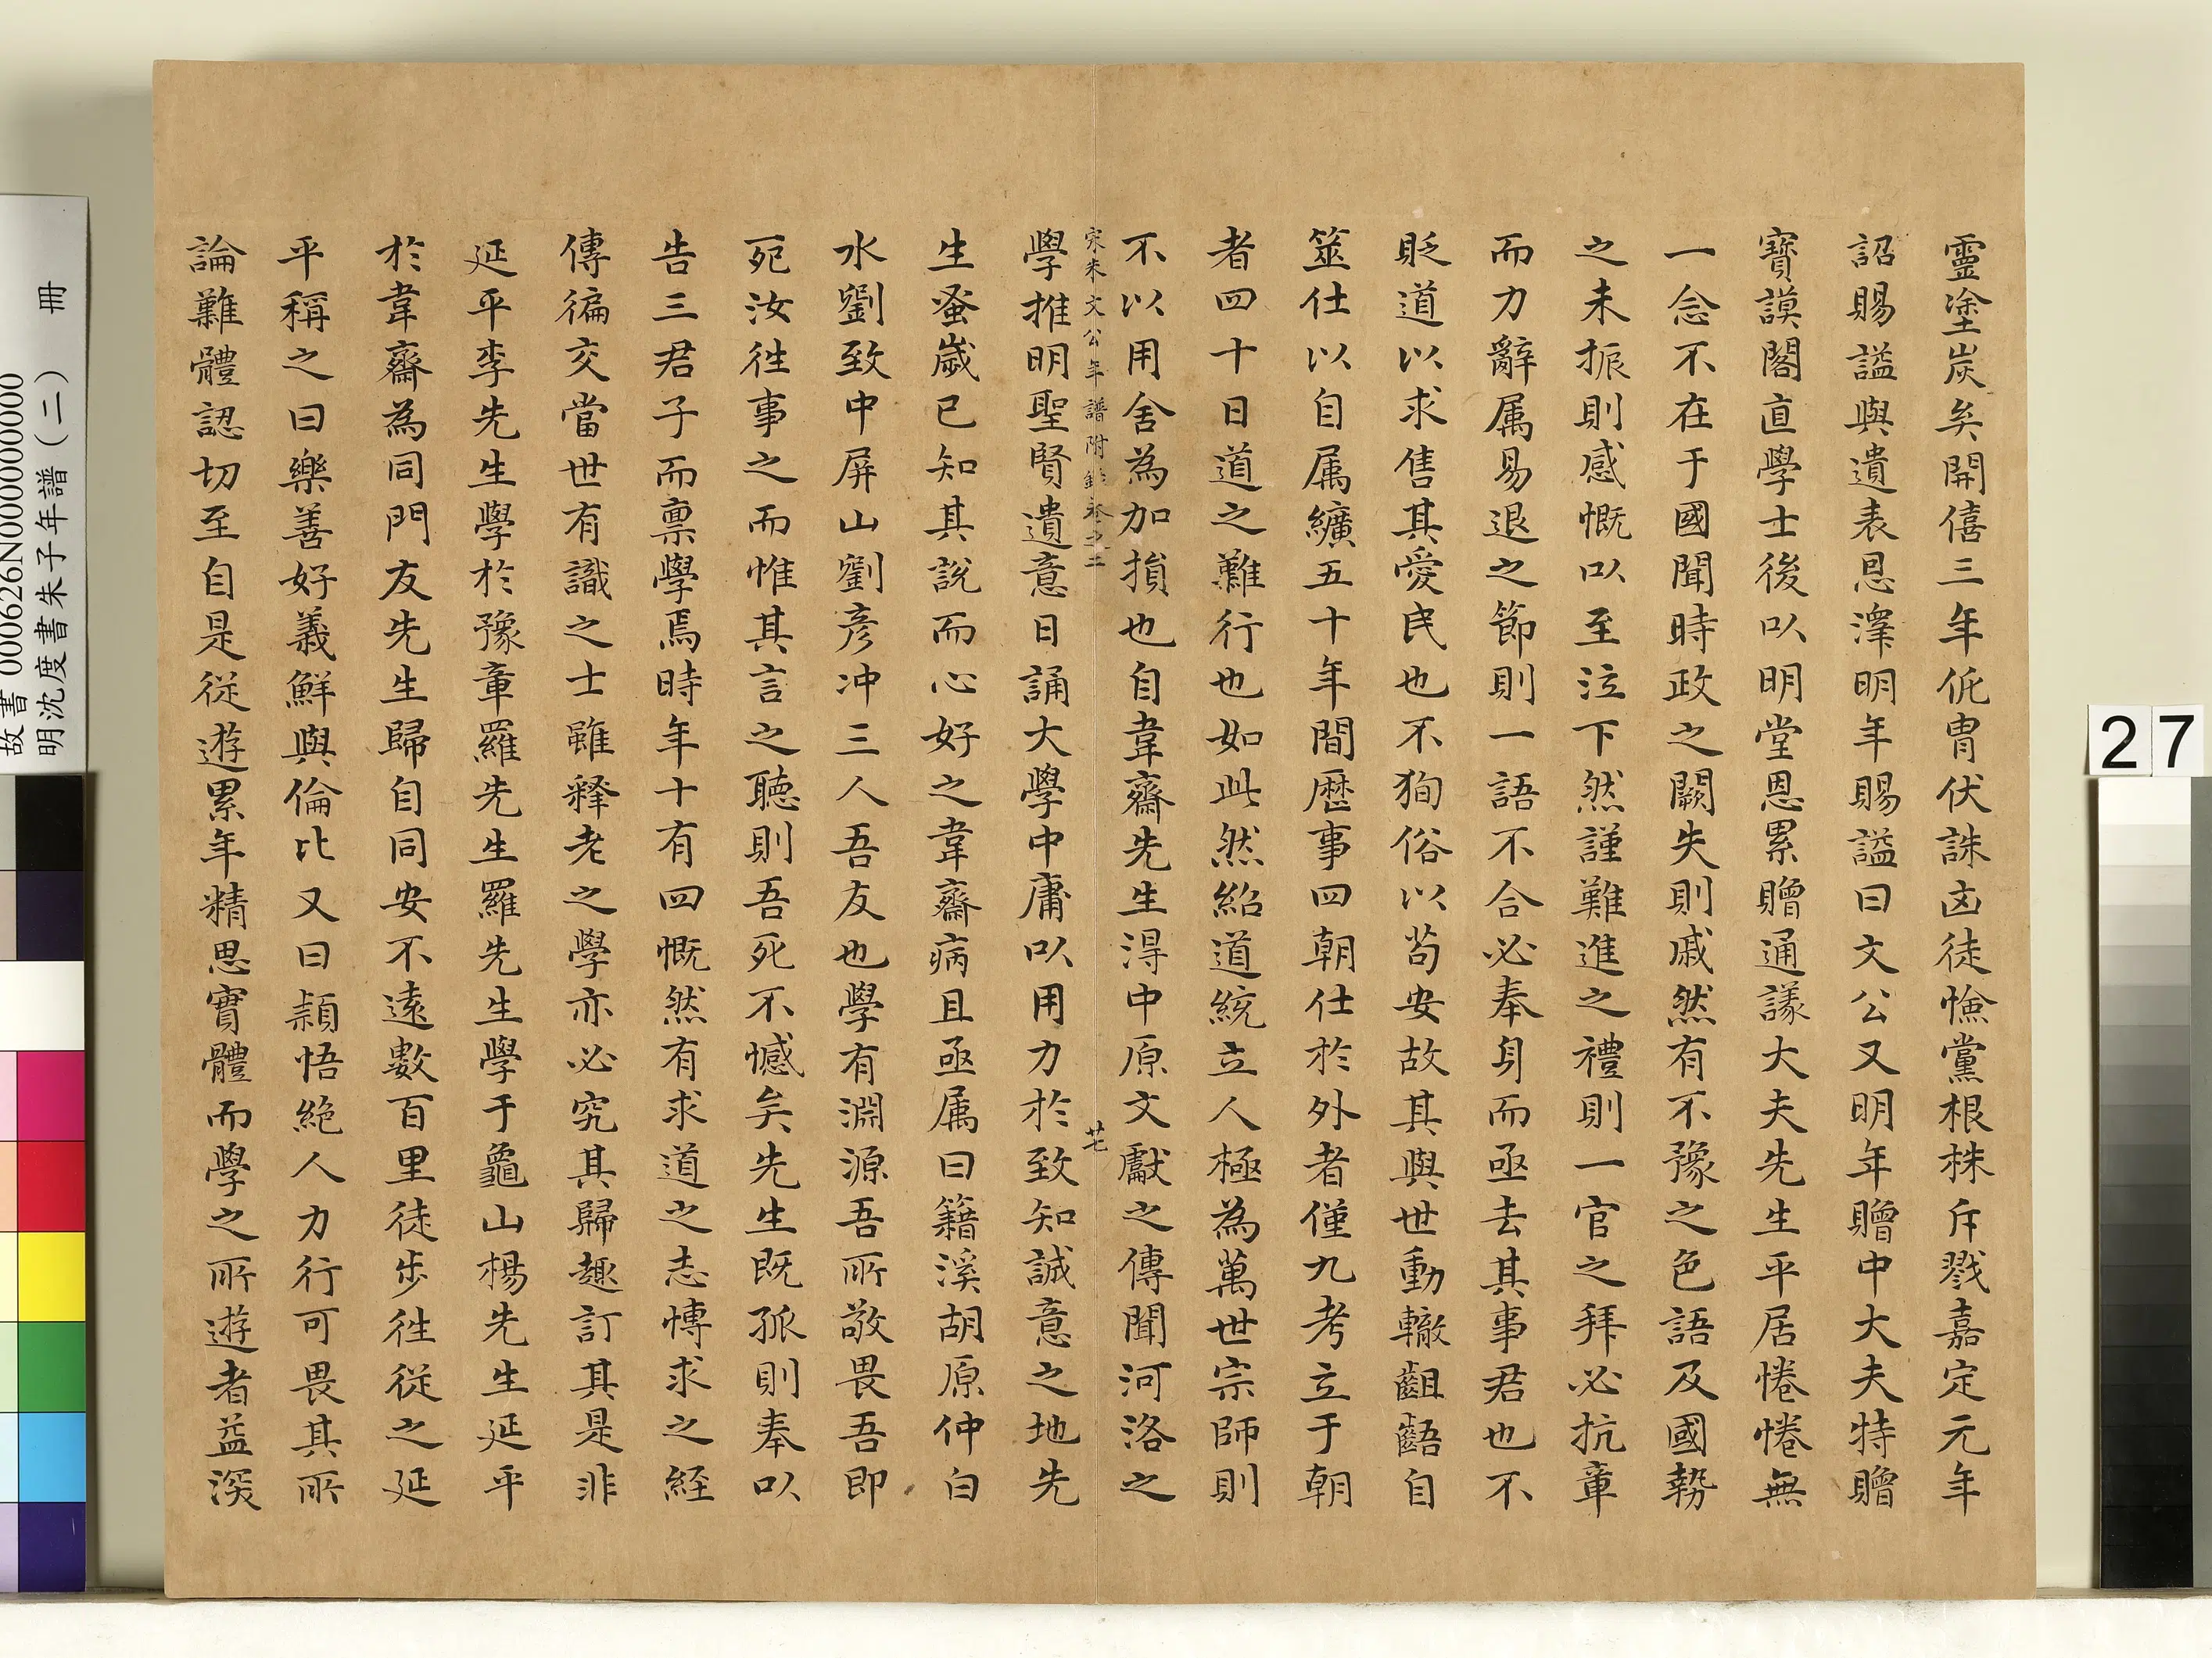 靈塗炭矣開僖三年侂胄伏誅凶徒憸黨根株斥戮嘉定元年
詔賜謚與遺表恩澤明年賜謚曰文公又明年贈中大夫特贈
寶謨閣直學士後以明堂恩累贈通議大夫先生平居惓惓無
一念不在于國聞時政之闕失則戚然有不豫之色語及國勢
之未振則感慨以至泣下然謹難進之禮則一官之拜必抗章
而力辭属易退之節則一語不合必奉身而亟去其事君也不
貶道以求售其愛民也不狥俗以苟安故其與世動轍齟齬自
筮仕以自属纊五十年間歷事四朝仕於外者僅九考立于朝
者四十日道之難行也如此然紹道統立人極為萬世宗師則
不以用舍為加損也自韋齋先生得中原文獻之傳聞河洛之
宋朱文公年譜附錄卷之二
廿七
學推明聖賢遺意日誦大學中庸以用力於致知誠意之地先
生蚤歲已知其說而心好之韋齋病且亟属曰籍溪胡原仲白
水劉致中屏山劉彥冲三人吾友也學有淵源吾所敬畏吾即
死汝徃事之而惟其言之聽則吾死不憾矣先生既孤則奉以
告三君子而禀學焉時年十有四慨然有求道之志慱求之經
傳徧交當世有識之士雖釋老之學亦必究其歸趣訂其是非
延平李先生學於豫章羅先生羅先生學于龜山楊先生延平
於韋齋為同門友先生歸自同安不遠數百里徒步徃從之延
平稱之曰樂善好義鮮與倫比又曰頴悟絶人力行可畏其所
論難體認切至自是從遊累年精思實體而學之所遊者益深
故書 000626N000000000
明沈度書朱子年譜(二) 冊
27